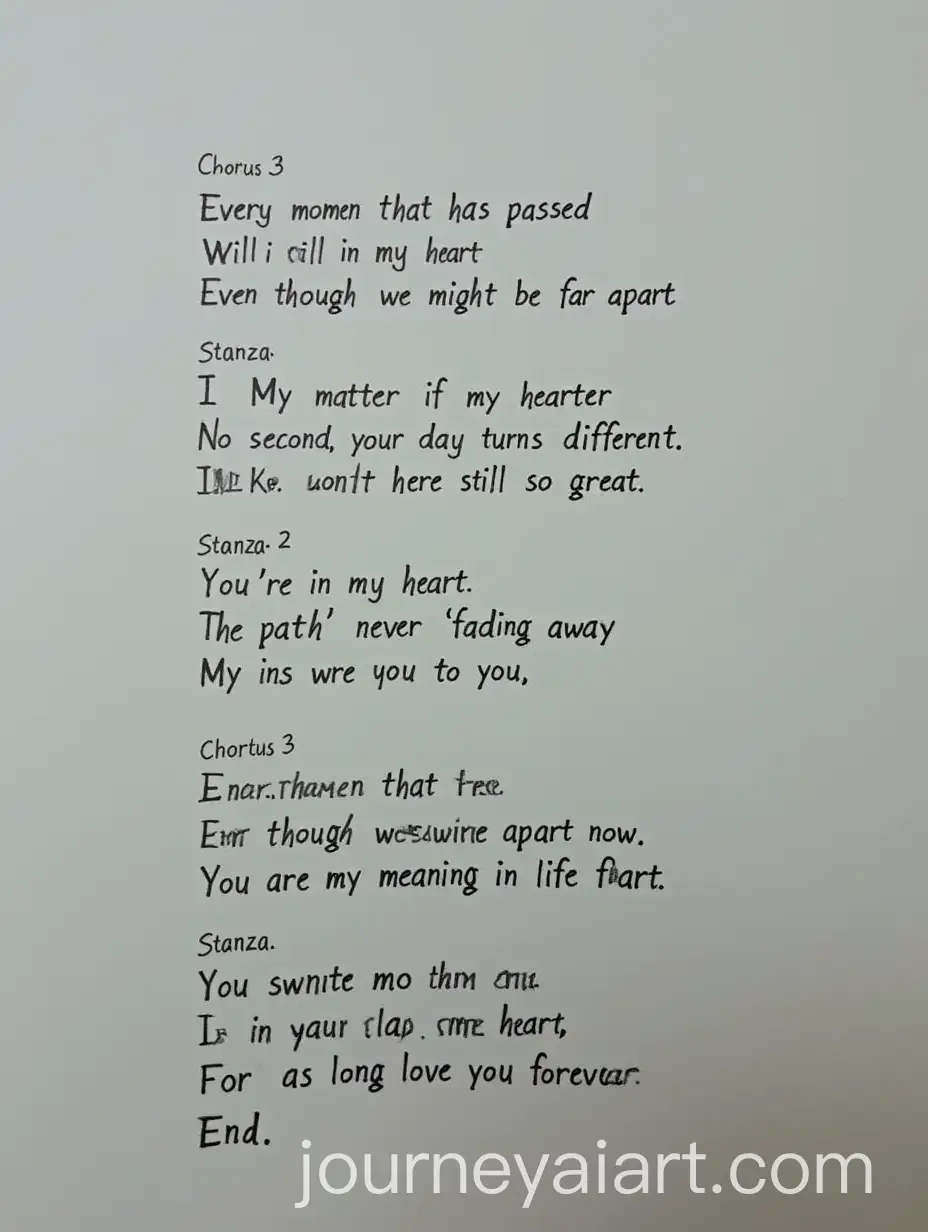 Chorus 3
Every momen that has passed
Will i in my heart
Even though we might be far apart
Stanza.
I My matter if my hearter
No second, your day turns different.
here still so great.
Stanza. 2
You're in my heart.
The path' never 'fading away
My ins wre you to you,
Chortus 3
that
though apart now.
You are my meaning in life
Stanza.
You swnite mo thm
in yaur heart,
For as long love you
End.
journeyaiart.com